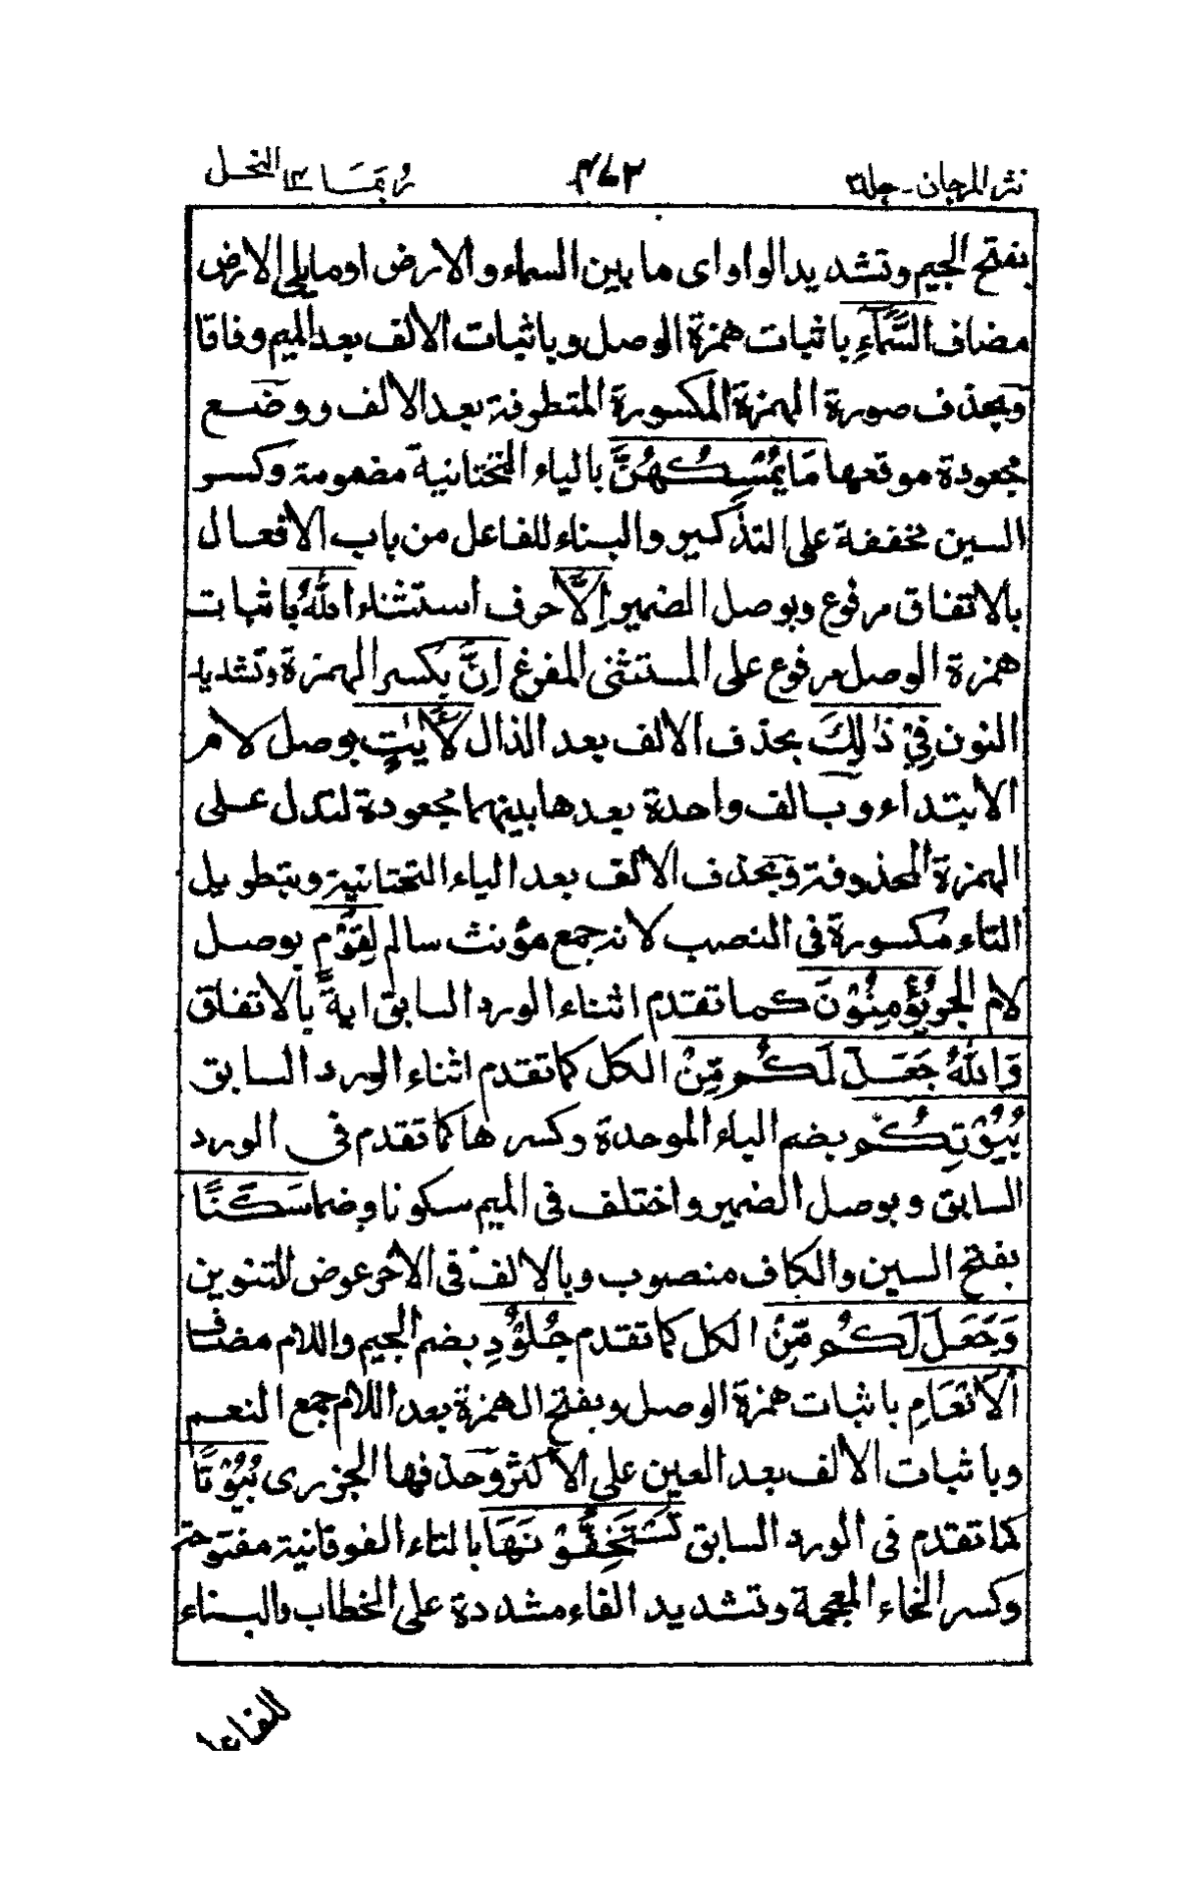 نثر المرجان - جلد۳ ۴۷۲ رُبَمَا ۱۴ النحل
بفتح الجيم وتشديد الواو اى ما بين السماء والارض او ما يلى الارض
مضاف السَّمَآءِ باثبات همزة الوصل وباثبات الالف بعد الميم وفاقا
وبحذف صورة الهمزة المكسورة المتطرفة بعد الالف ووضع
مجعودة موقعها مَا يُمْسِكُهُنَّ بالياء التحتانية مضمومة وكسر
السين مخففة على التذكير والبناء للفاعل من باب الافعال
بالاتفاق مرفوع وبوصل الضمير اِلَّا حرف استثناء اللّٰهُ باثبات
همزة الوصل مرفوع على المستثنى المفرغ اِنَّ بكسر الهمزة وتشديد
النون فِىْ ذٰلِكَ بحذف الالف بعد الذال لَاٰيٰتٍ بوصل لام
الابتداء وبالف واحدة بعدها بينهما مجعودة لتدل على
الهمزة المحذوفة وبحذف الالف بعد الياء التحتانية وبتطويل
التاء مكسورة فى النصب لانه جمع مؤنث سالم لِقَوْمٍ بوصل
لام الجر يُؤْمِنُوْنَ كما تقدم اثناء الورد السابق اية بالاتفاق
وَاللّٰهُ جَعَلَ لَكُمْ مِّنْ الكل كما تقدم اثناء الورد السابق
بُيُوْتِكُمْ بضم الباء الموحدة وكسرها كما تقدم فى الورد
السابق وبوصل الضمير واختلف فى الميم سكونا وضما سَكَنًا
بفتح السين والكاف منصوب وبالالف فى الاخر عوض التنوين
وَجَعَلَ لَكُمْ مِّنْ الكل كما تقدم جُلُوْدِ بضم الجيم واللام مضاف
الْاَنْعَامِ باثبات همزة الوصل وبفتح الهمزة بعد اللام جمع النعم
وباثبات الالف بعد العين على الاكثر وحذفها الجزرى بُيُوْتًا
كما تقدم فى الورد السابق تَسْتَخِفُّوْنَهَا بالتاء الفوقانية مفتوحة
وكسر الخاء المعجمة وتشديد الفاء مشددة على الخطاب والبناء
للفاعل